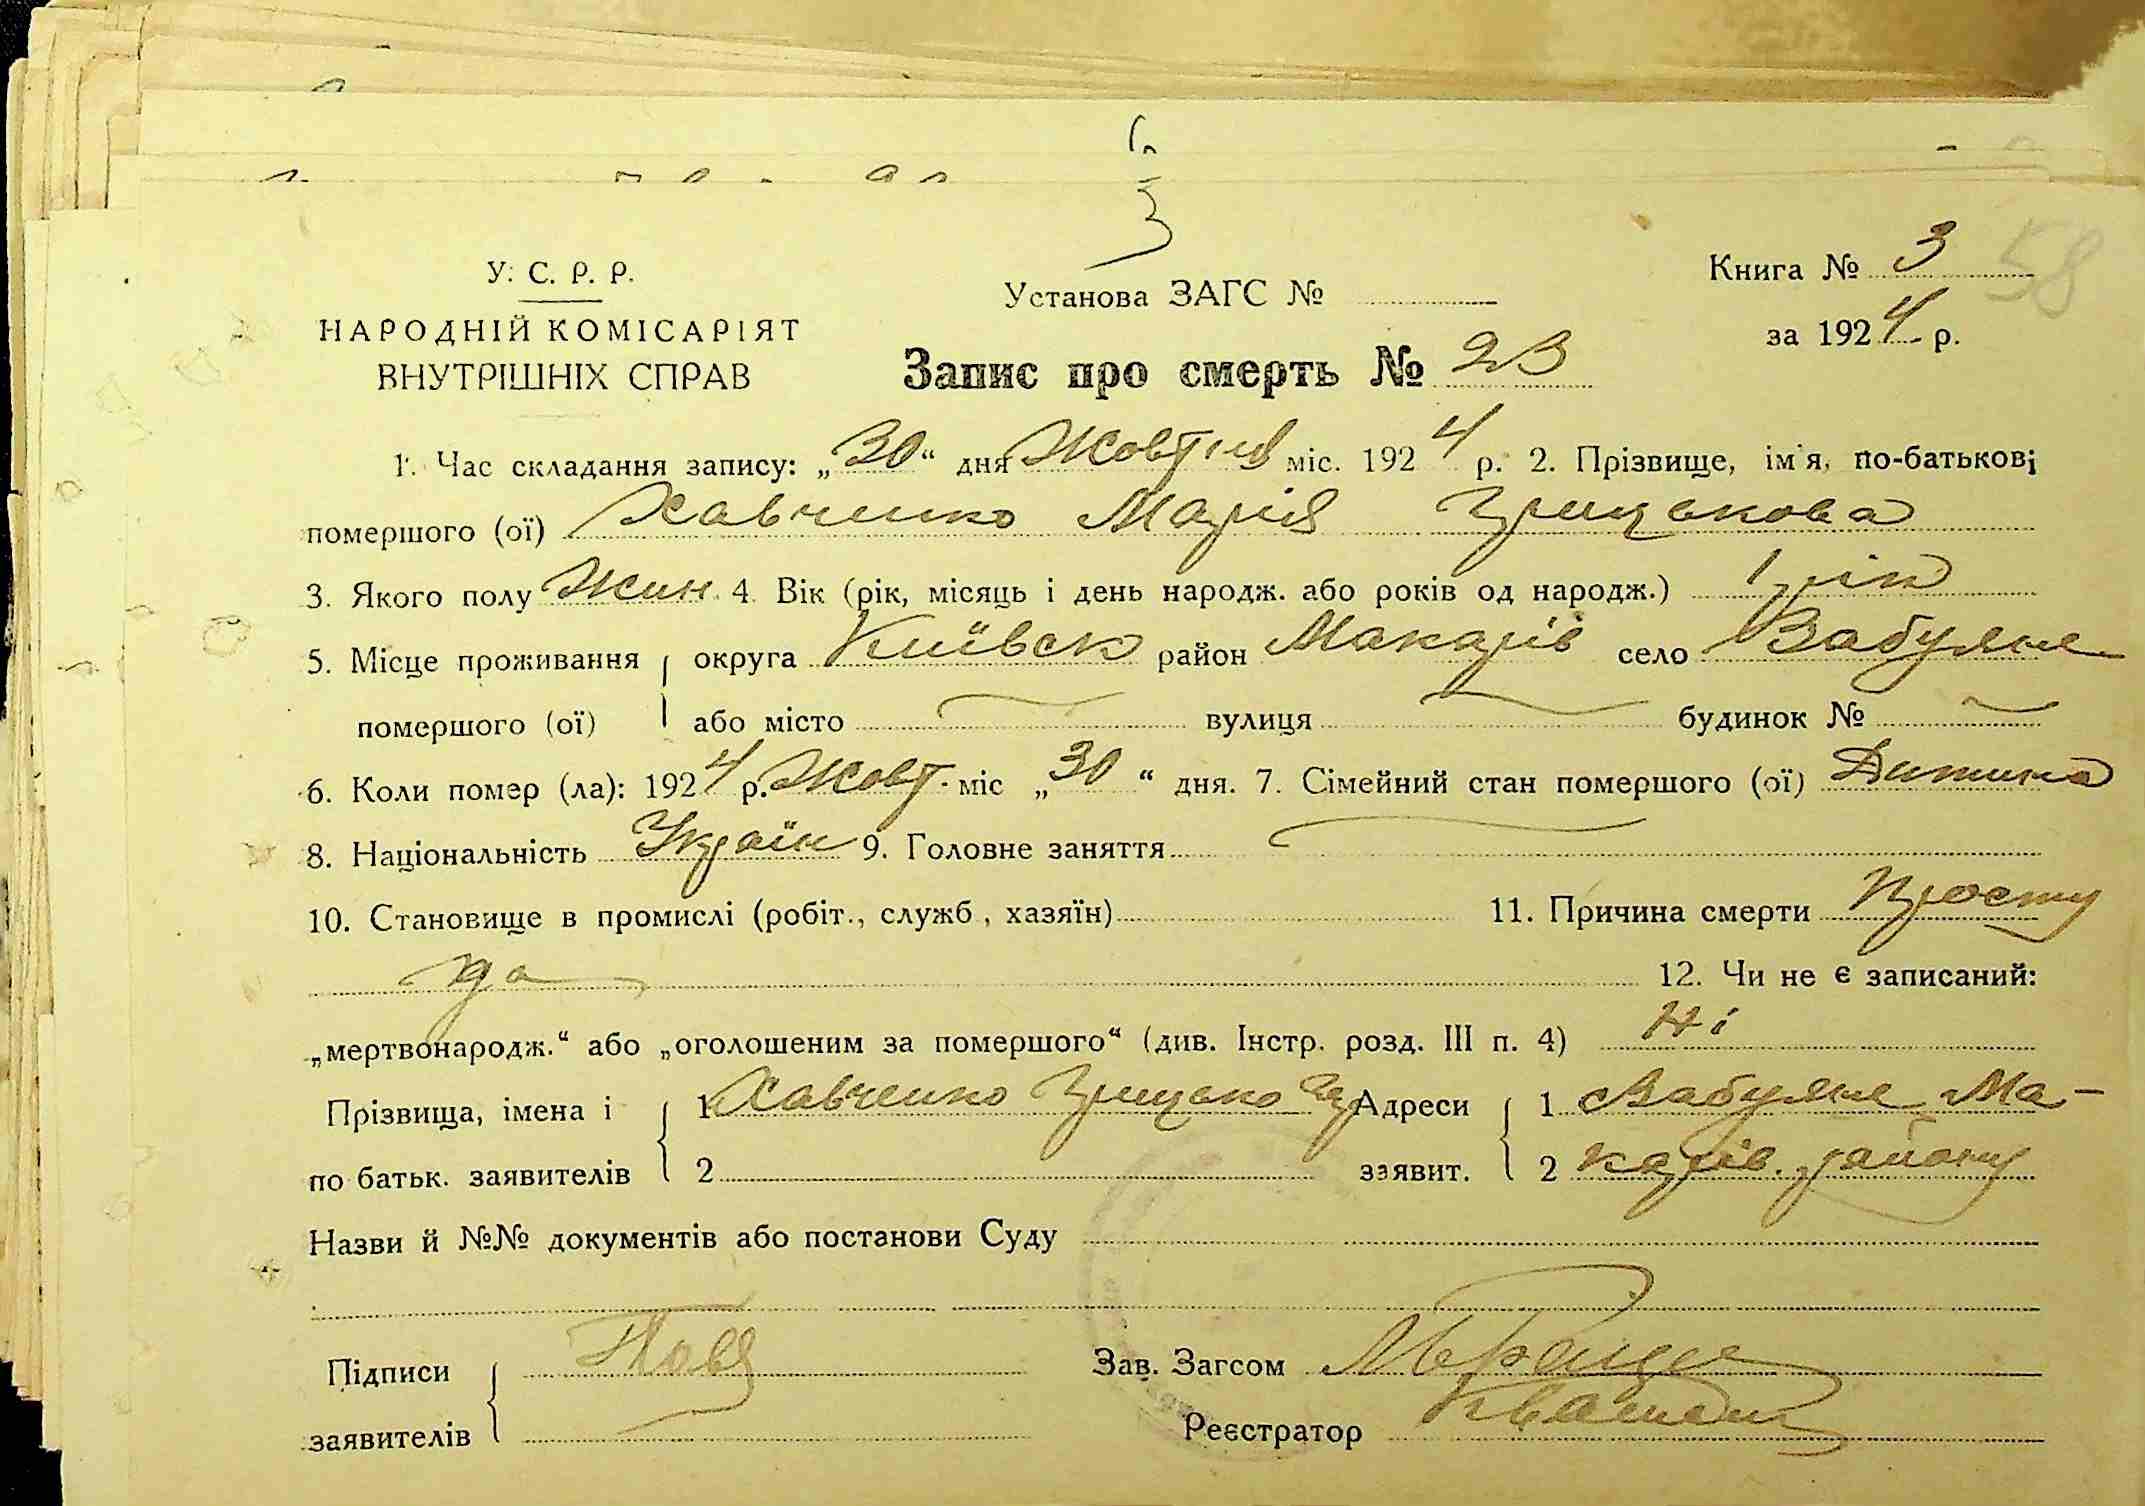 58
У. С. Р. Р.
НАРОДНІЙ КОМІСАРІЯТ
ВНУТРІШНІХ СПРАВ
Установа ЗАГС №
Книга № 3
за 1924 р.
Запис про смерть № 23
1. Час складання запису: „30“ дня Жовтня міс. 1924 р. 2. Прізвище, ім'я, по-батькові
помершого (ої) Хавченко Марія Грицькова
3. Якого полу Жин. 4. Вік (рік, місяць і день народж. або років од народж.) 1 рік
5. Місце проживання округа Київськ район Макарів село Вабуяне
помершого (ої) або місто вулиця будинок №
6. Коли помер (ла): 1924 р. Жовт. міс „30“ дня. 7. Сімейний стан помершого (ої) Дитина
8. Національність Україн 9. Головне заняття
10. Становище в промислі (робіт., служб., хазяїн) 11. Причина смерти Просту
да 12. Чи не є записаний:
„мертвонародж.“ або „оголошеним за помершого“ (див. Інстр. розд. III п. 4) Ні
Прізвища, імена і 1 Хавченко Грицько Адреси 1 Вабуяне Ма-
по батьк. заявителів 2 заявит. 2 карів. району
Назви й №№ документів або постанови Суду
Підписи Зав. Загсом
заявителів Реєстратор